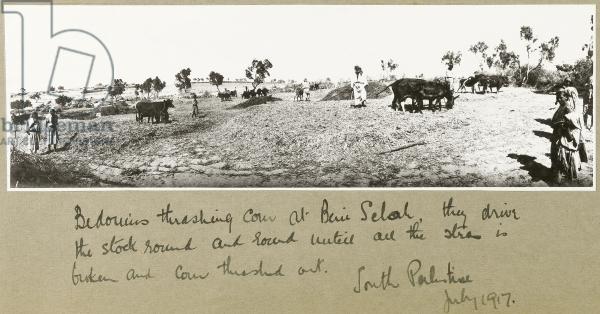 bridgeman
images
Bedouins thrashing Corn at Beni Selah, they drive
the stock round and round until all the straw is
broken and corn thrashed out.
South Palestine
July 1917.